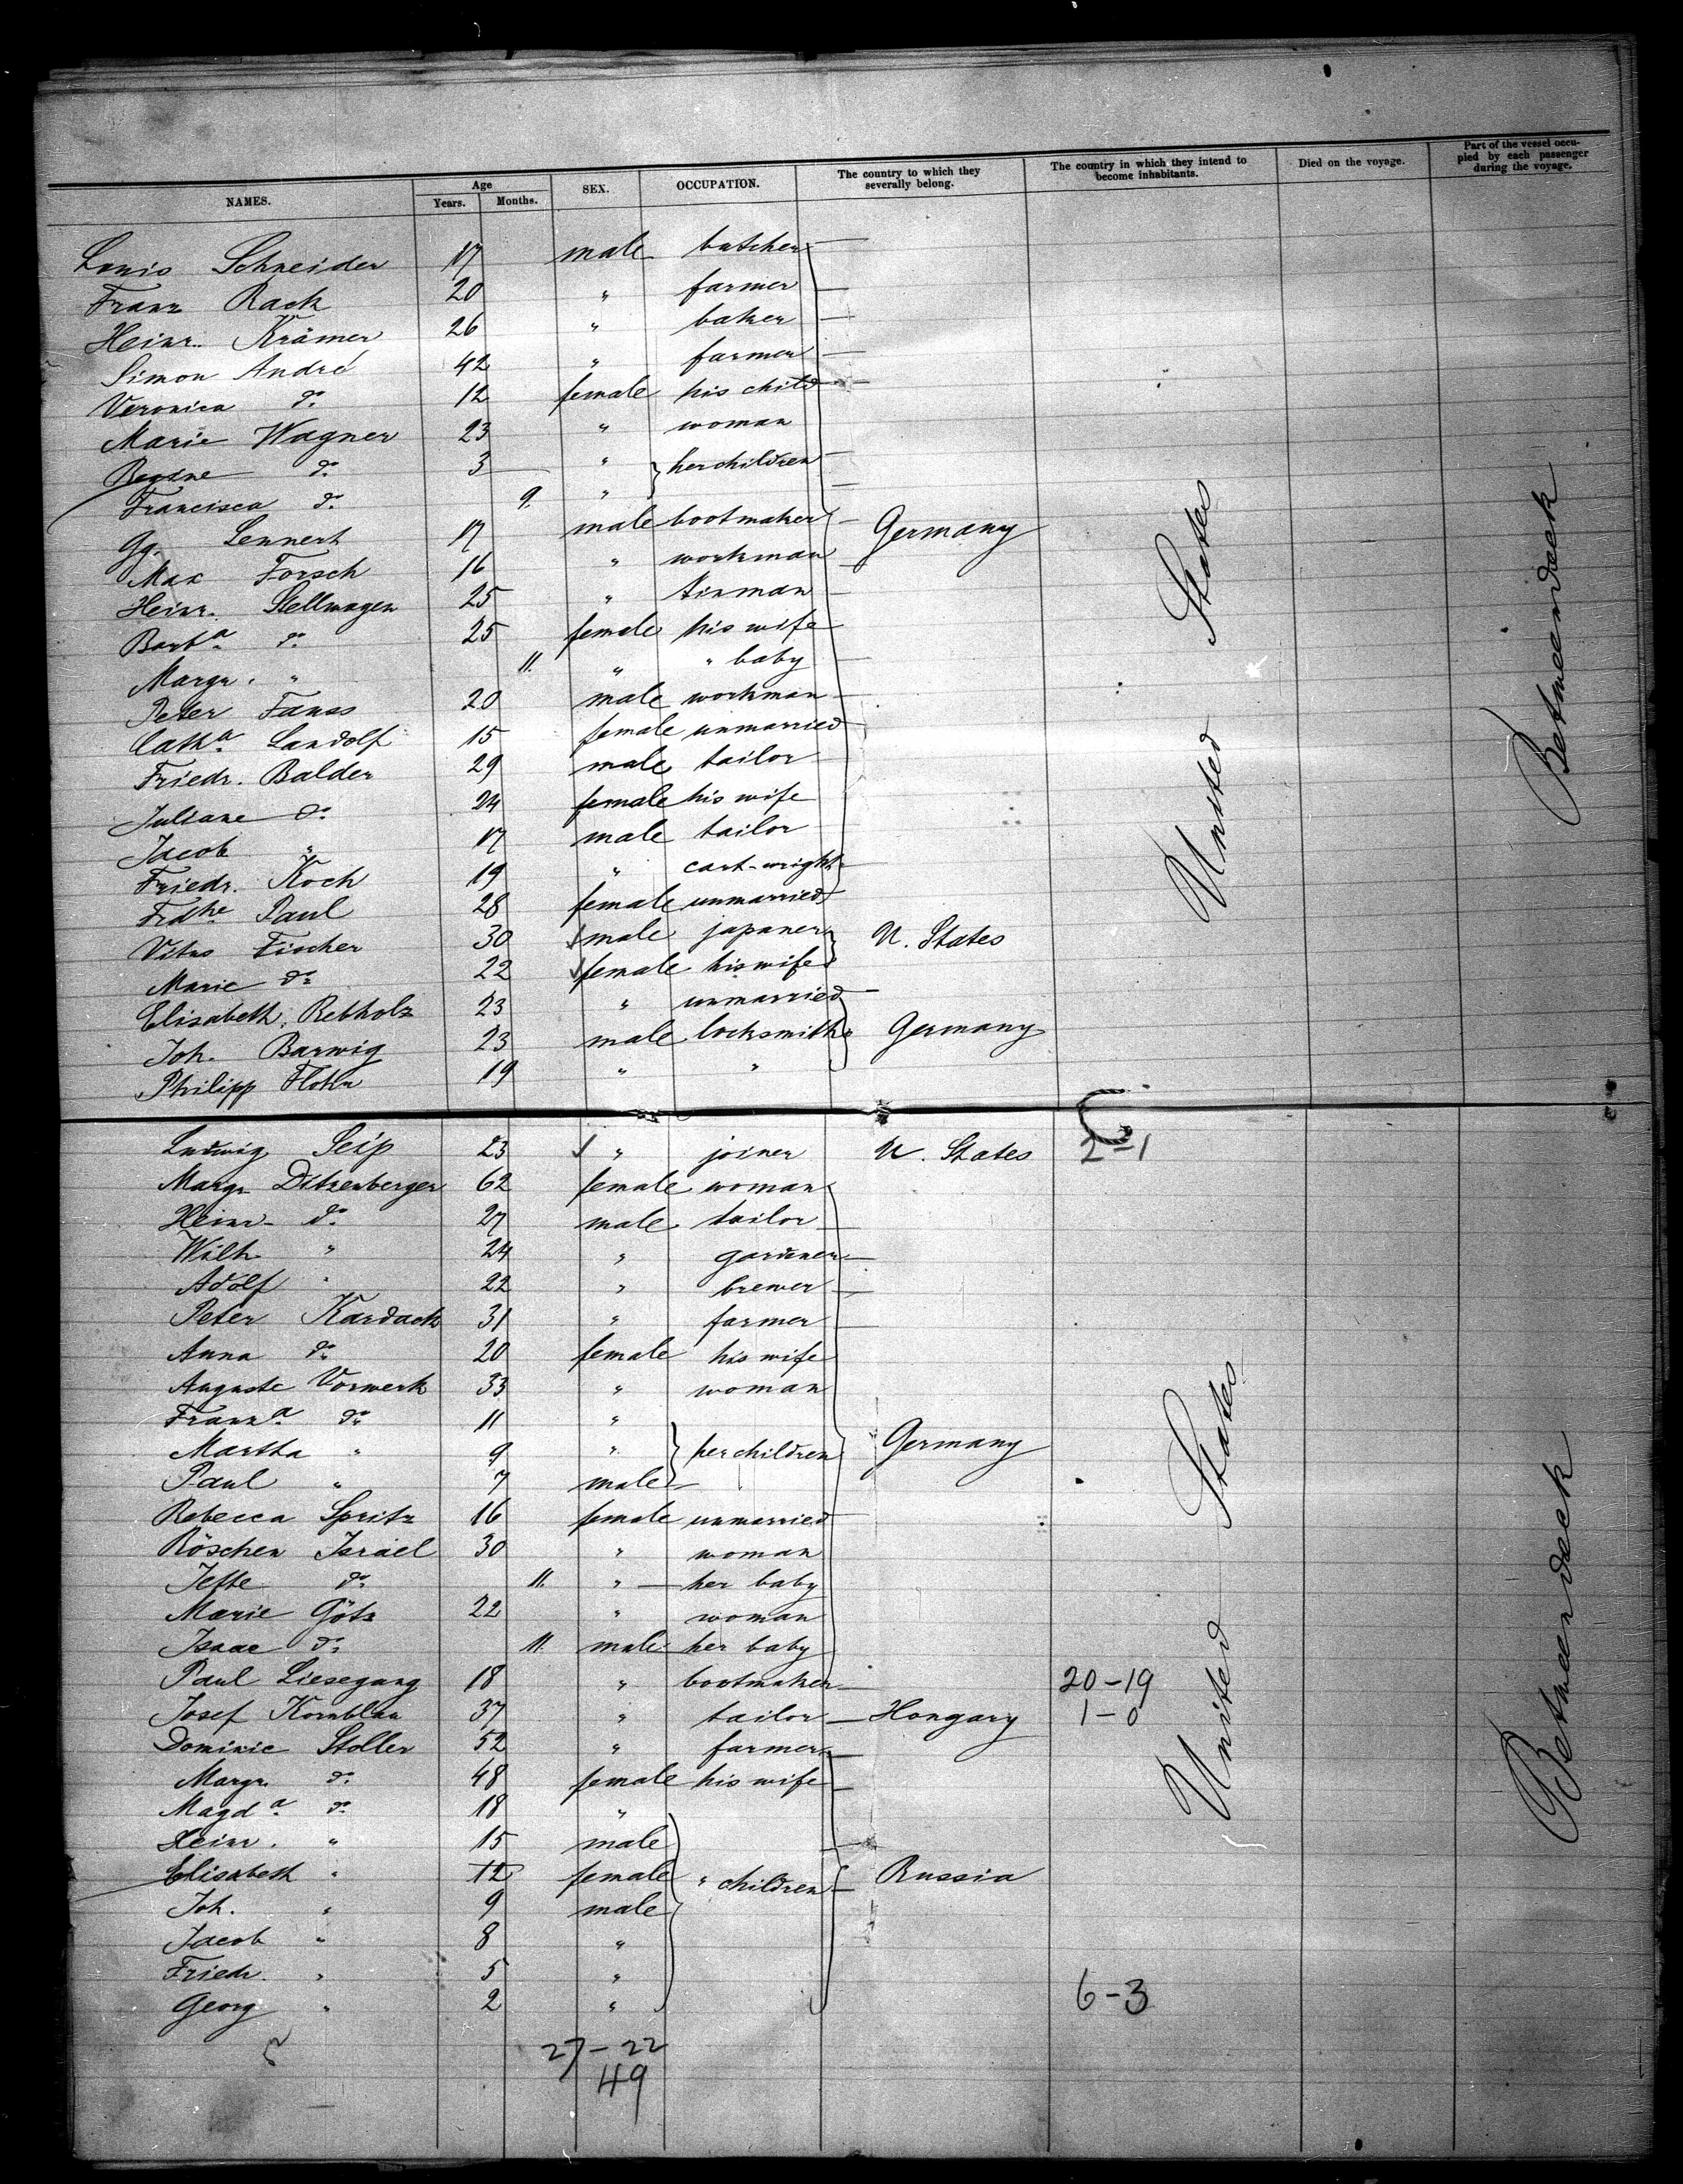 NAMES. Age Years. Months. SEX. OCCUPATION. The country to which they severally belong. The country in which they intend to become inhabitants. Died on the voyage. Part of the vessel occupied by each passenger during the voyage.
Louis Schneider 17 male butcher
Franz Rack 20 " farmer
Heinr. Krämer 26 " baker
Simon André 42 " farmer
Veronica do. 12 female his child
Marie Wagner 23 " woman
do. 3 " her children
Francisca do. 9. "
Gg. Lennert 17 male bootmaker Germany
Max Forsch 16 " workman
Heinr. Stellwagen 25 " tinman
Barba. do. 25 female his wife
Margr. " 11. " " baby
Peter Fauss 20 male workman
Catha. Landolf 15 female unmarried
Friedr. Balder 29 male tailor
Juliane do. 24 female his wife
Jacob " 17 male tailor
Friedr. Koch 19 " cart-wright
Frdke Paul 28 female unmarried
Vitus Fischer 30 male japaner U. States
Marie do. 22 female his wife
Elisabeth Rebholz 23 " unmarried
Joh. Barwig 23 male locksmith Germany
Philipp Hohn 19 " "
United States
Betweendeck
Ludwig Seip 23 " joiner U. States 2-1
Margr. Ditzenberger 62 female woman
Heinr. do. 27 male tailor
Wilh. " 24 " gardener
Adolf " 22 " brewer
Peter Kardack 31 " farmer
Anna do. 20 female his wife
Auguste Vorwerk 33 " woman
Franza. do. 11 "
Martha " 9 " her children Germany
Paul " 7 male
Rebecca Spritz 16 female unmarried
Röschen Israel 30 " woman
Jette do. 11. " her baby
Marie Götz 22 " woman
Isaac do. 11. male her baby
Paul Liesegang 18 " bootmaker 20-19
Josef Kornblau 37 " tailor Hongary 1-0
Dominic Stoller 52 " farmer
Margr. do. 48 female his wife
Magda. do. 18 "
Heinr. " 15 male
Elisabeth " 12 female " children Russia
Joh. " 9 male
Jacob " 8 "
Friedr. " 5 "
Georg " 2 " 6-3
United States
Betweendeck
27-22
49